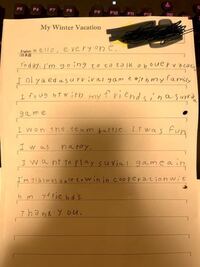 My Winter Vacation
English
日本語
Hello, everyone.
Today, I'm going to to talk about our vacac
I played a survival game with my family
I fought with my friends, in a surval
game
I won the team battle. It was fun
I was happy.
I want to play survial game ain
I'm to win in cooperation wit
h my friends
Thank you.